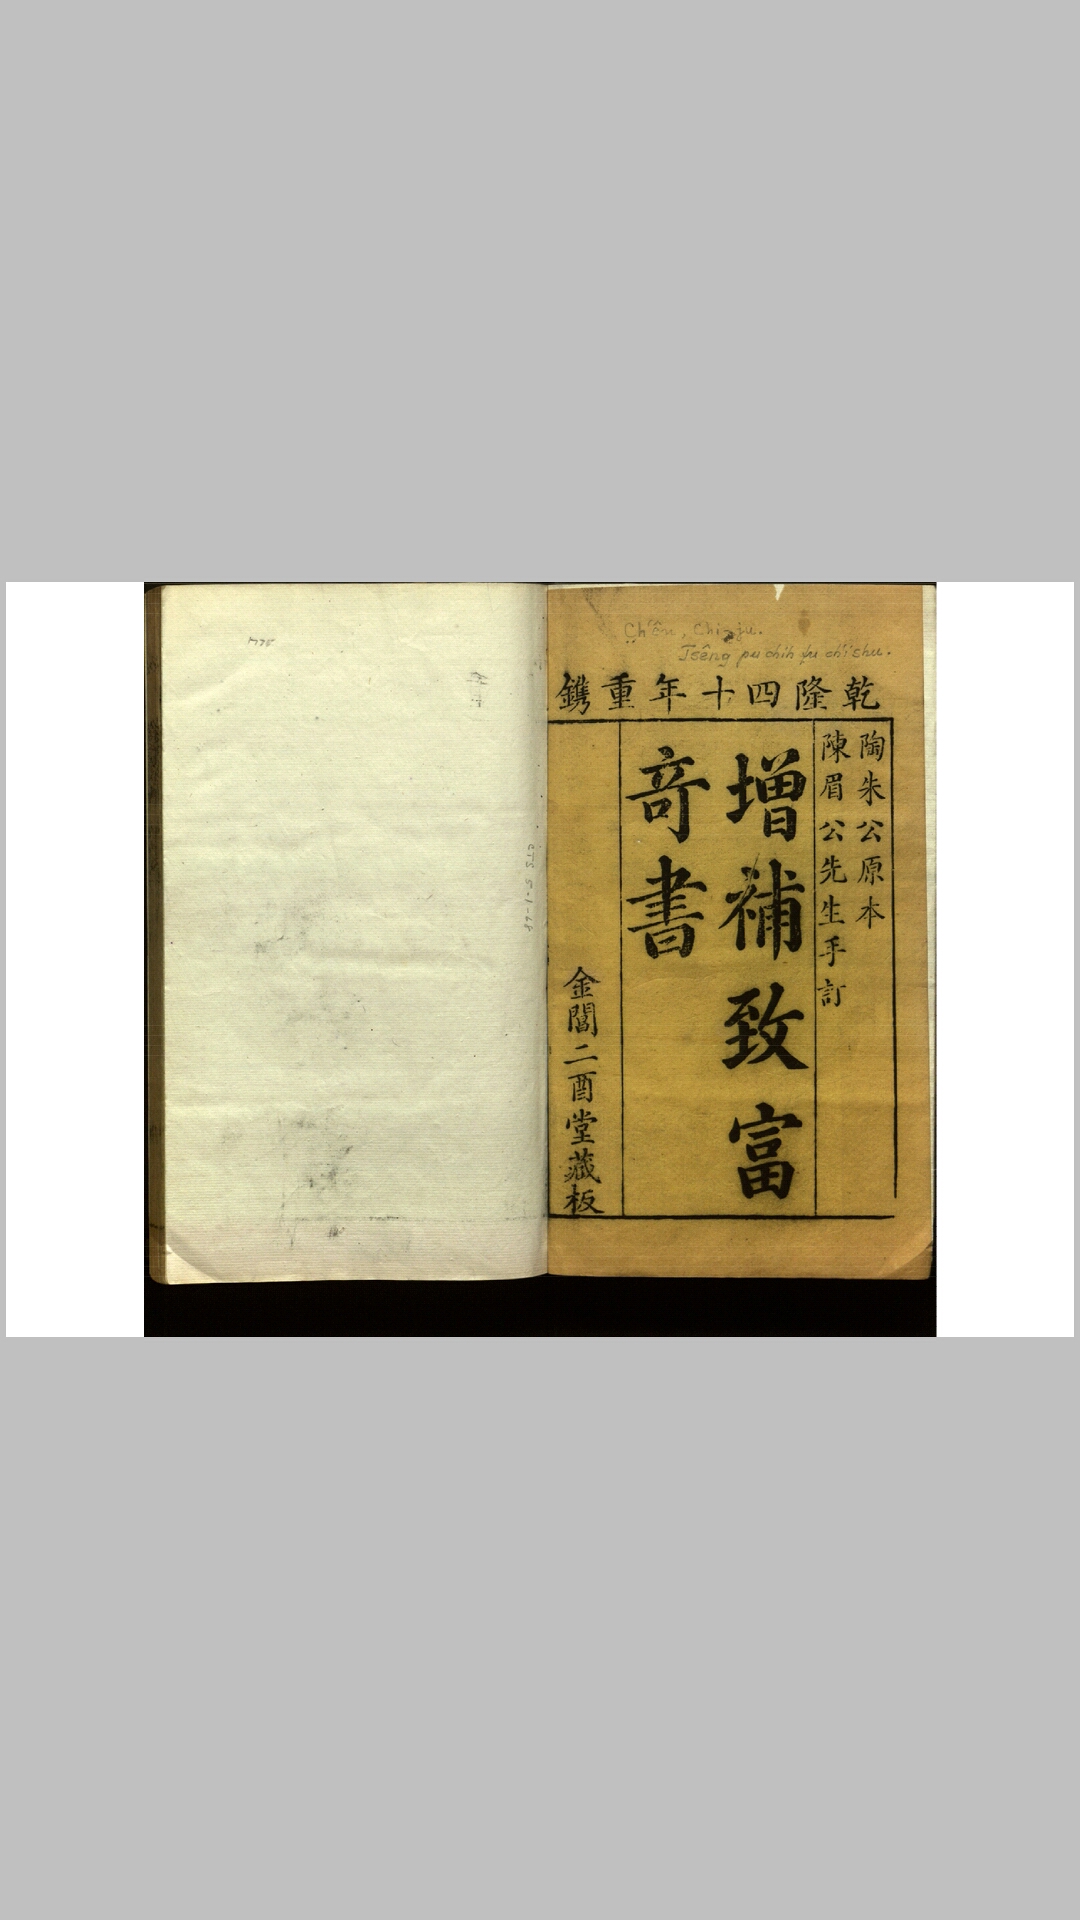 Ch'ên, Chi-ju.
Tsêng pu chih fu ch'i shu.
乾隆四十年重鐫
陶朱公原本
陳眉公先生手訂
增補致富
奇書
金閶二酉堂藏板